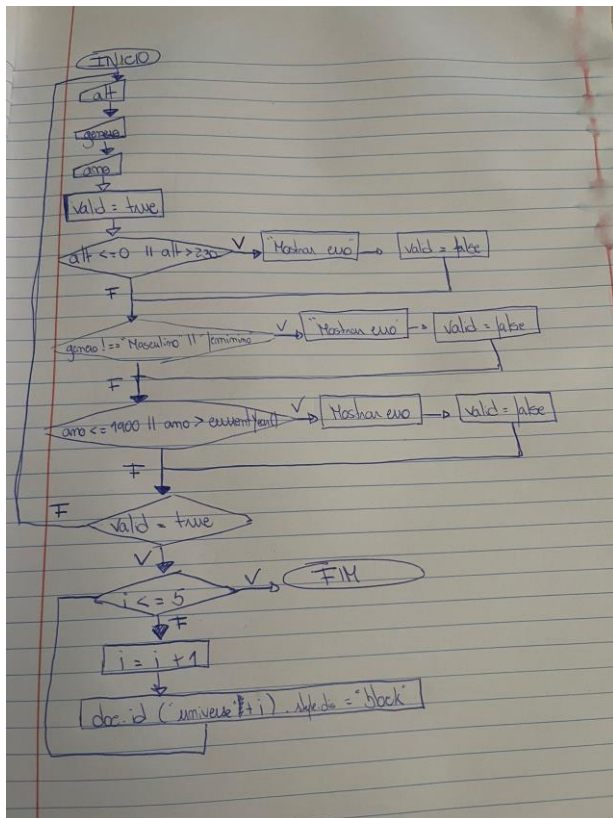 INICIO
alt
genero
ano
valid = true
alt <= 0 || alt > 230
V
"Mostrar erro"
valid = false
F
genero !== "Masculino || "feminino
V
"Mostrar erro"
valid = false
F
ano <= 1900 || ano > currentYear()
V
Mostrar erro
valid = false
F
F
valid = true
V
i <= 5
V
FIM
F
i = i + 1
doc.id ("universe" + i) . style.dis = "block"